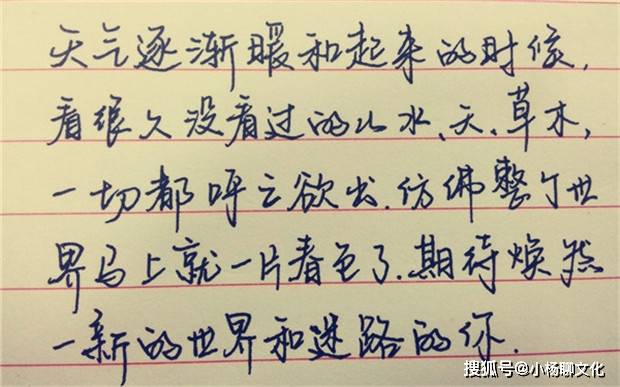 天气逐渐暖和起来的时候,
看很久没看过的山水、天、草木,
一切都呼之欲出.仿佛整个世
界马上就一片春色了.期待焕然
一新的世界和迷路的你.
搜狐号@小杨聊文化